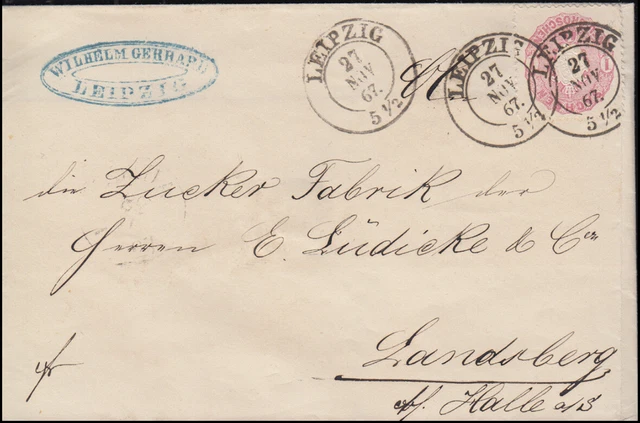 WILHELM GERHARD
LEIPZIG
LEIPZIG
27
NOV
67.
5 1/2
LEIPZIG
27
NOV
67.
5 1/2
LEIPZIG
27
NOV
67.
5 1/2
GROSCHEN
die Zucker Fabrik der
Herren E. Lüdicke & Co
Landsberg
Halle a/S